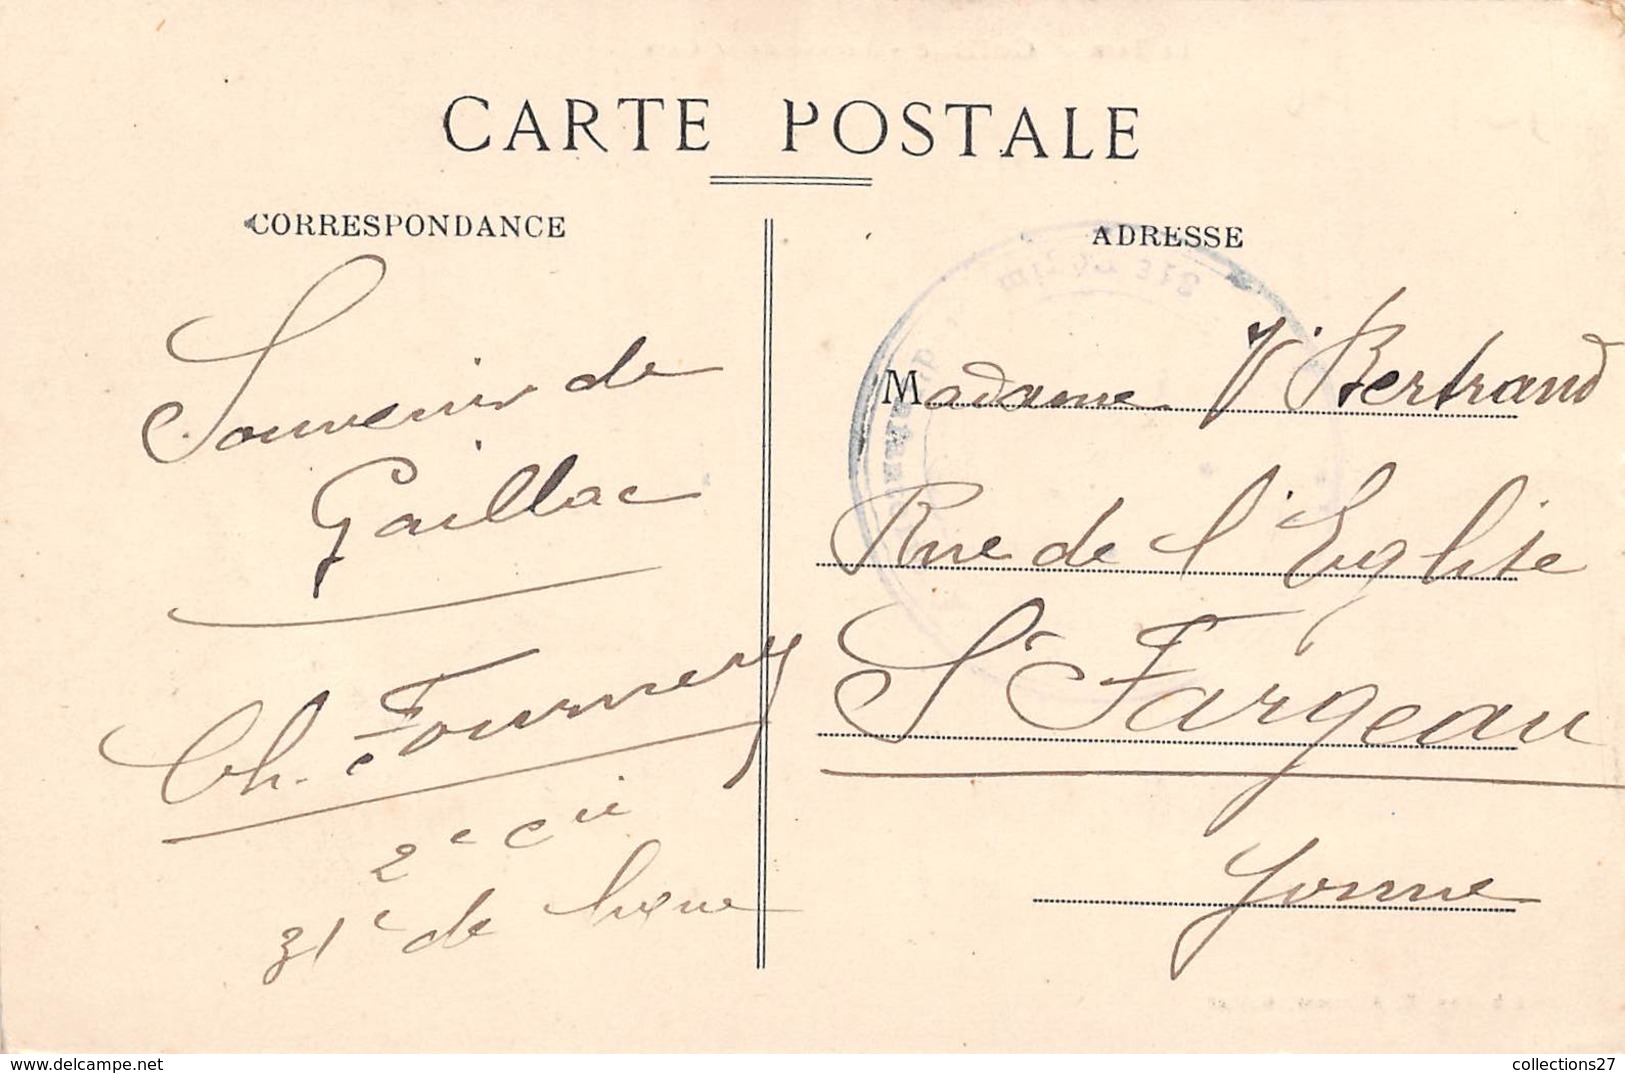 CARTE POSTALE
CORRESPONDANCE
Souvenir de
Gaillac
Ch. Fournery
2e Cie
31e de ligne
ADRESSE
Madame Ve Bertrand
Rue de l'Eglise
St Fargeau
Yonne
delcampe.net
collections27